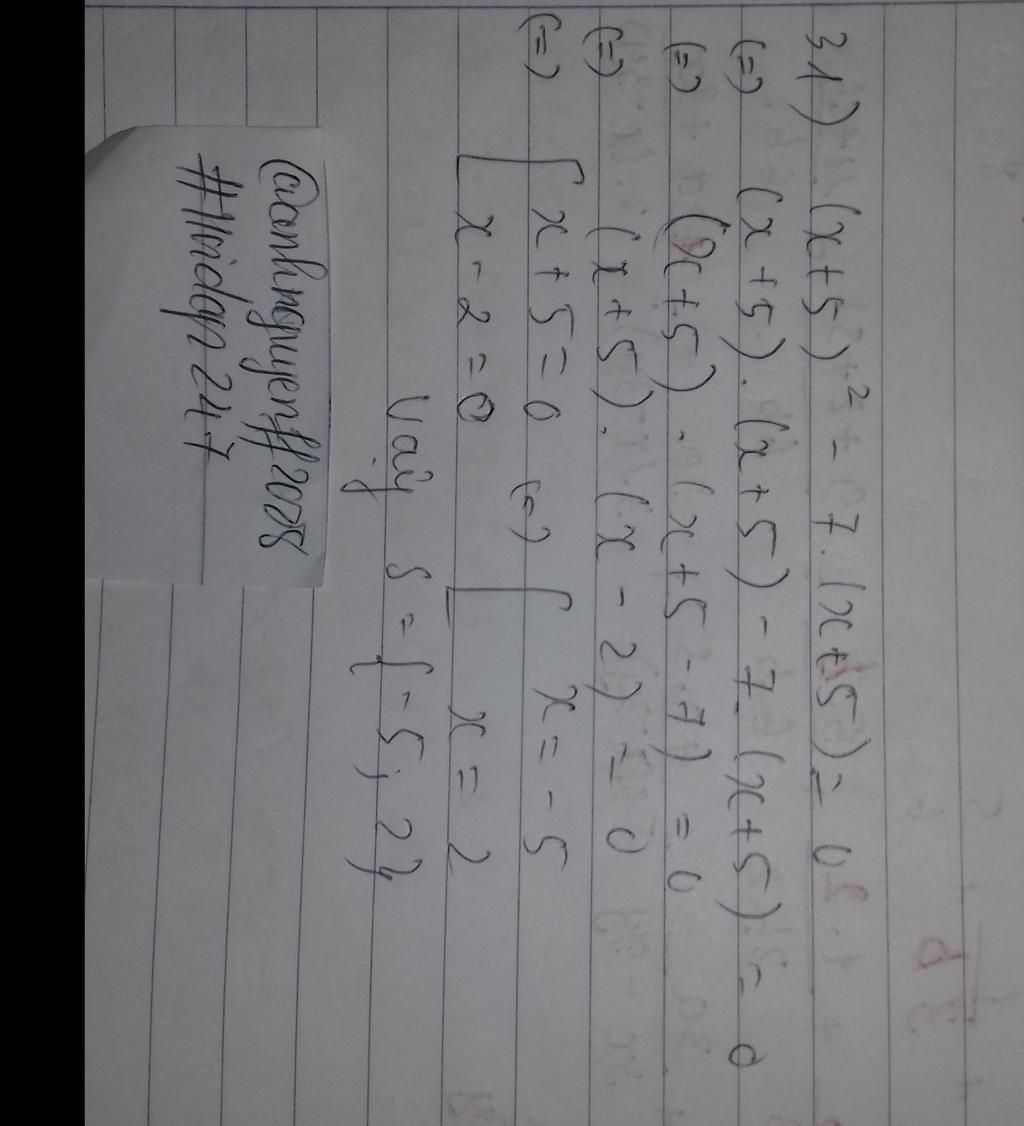 31) (x+5)² - 7.(x+5) = 0
(=) (x+5).(x+5) - 7.(x+5) = 0
(=) (x+5).(x+5-7) = 0
(=) (x+5).(x-2) = 0
(=) [ x+5=0 (=) [ x=-5
x-2=0 x=2
Vậy S = {-5; 2}
@anhnguyen#2008
#Hoidap247